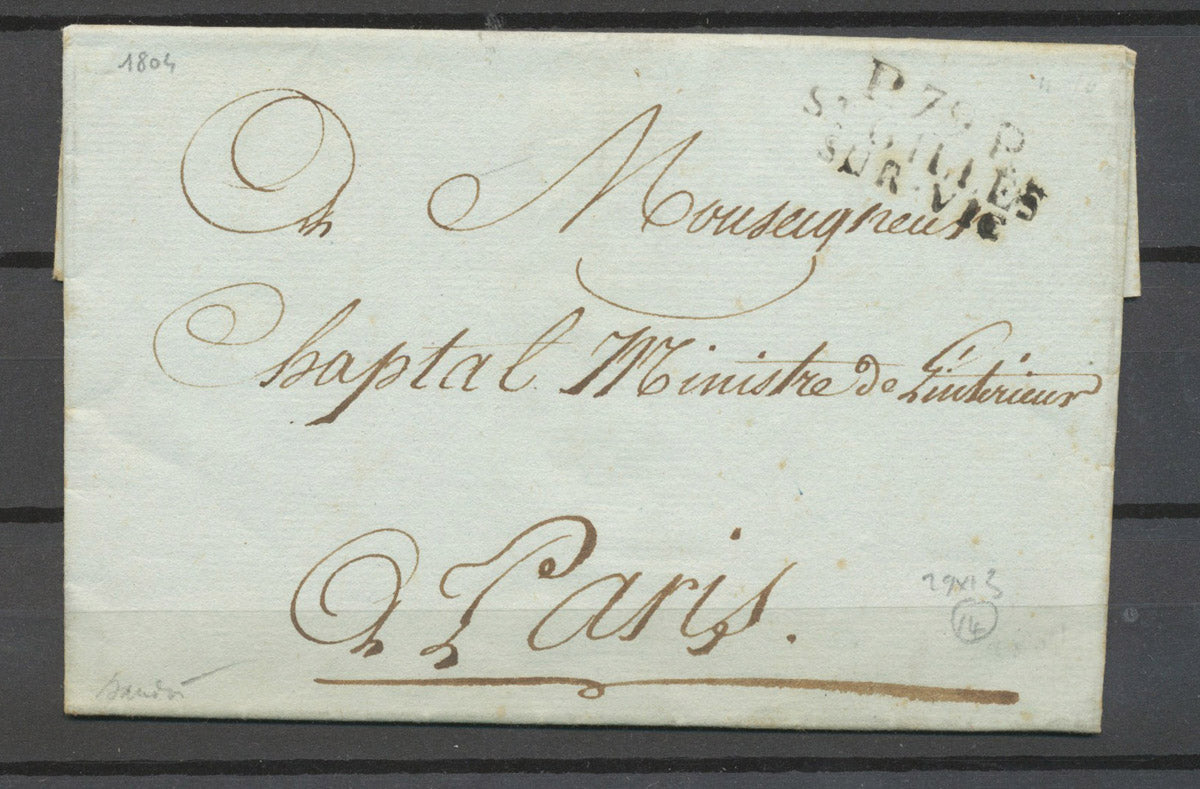 1804
P.79.P.
ST GILLES
SUR-VIE
A Monseigneur
Chaptal Ministre de L'intérieur
A Paris.
29x13
14